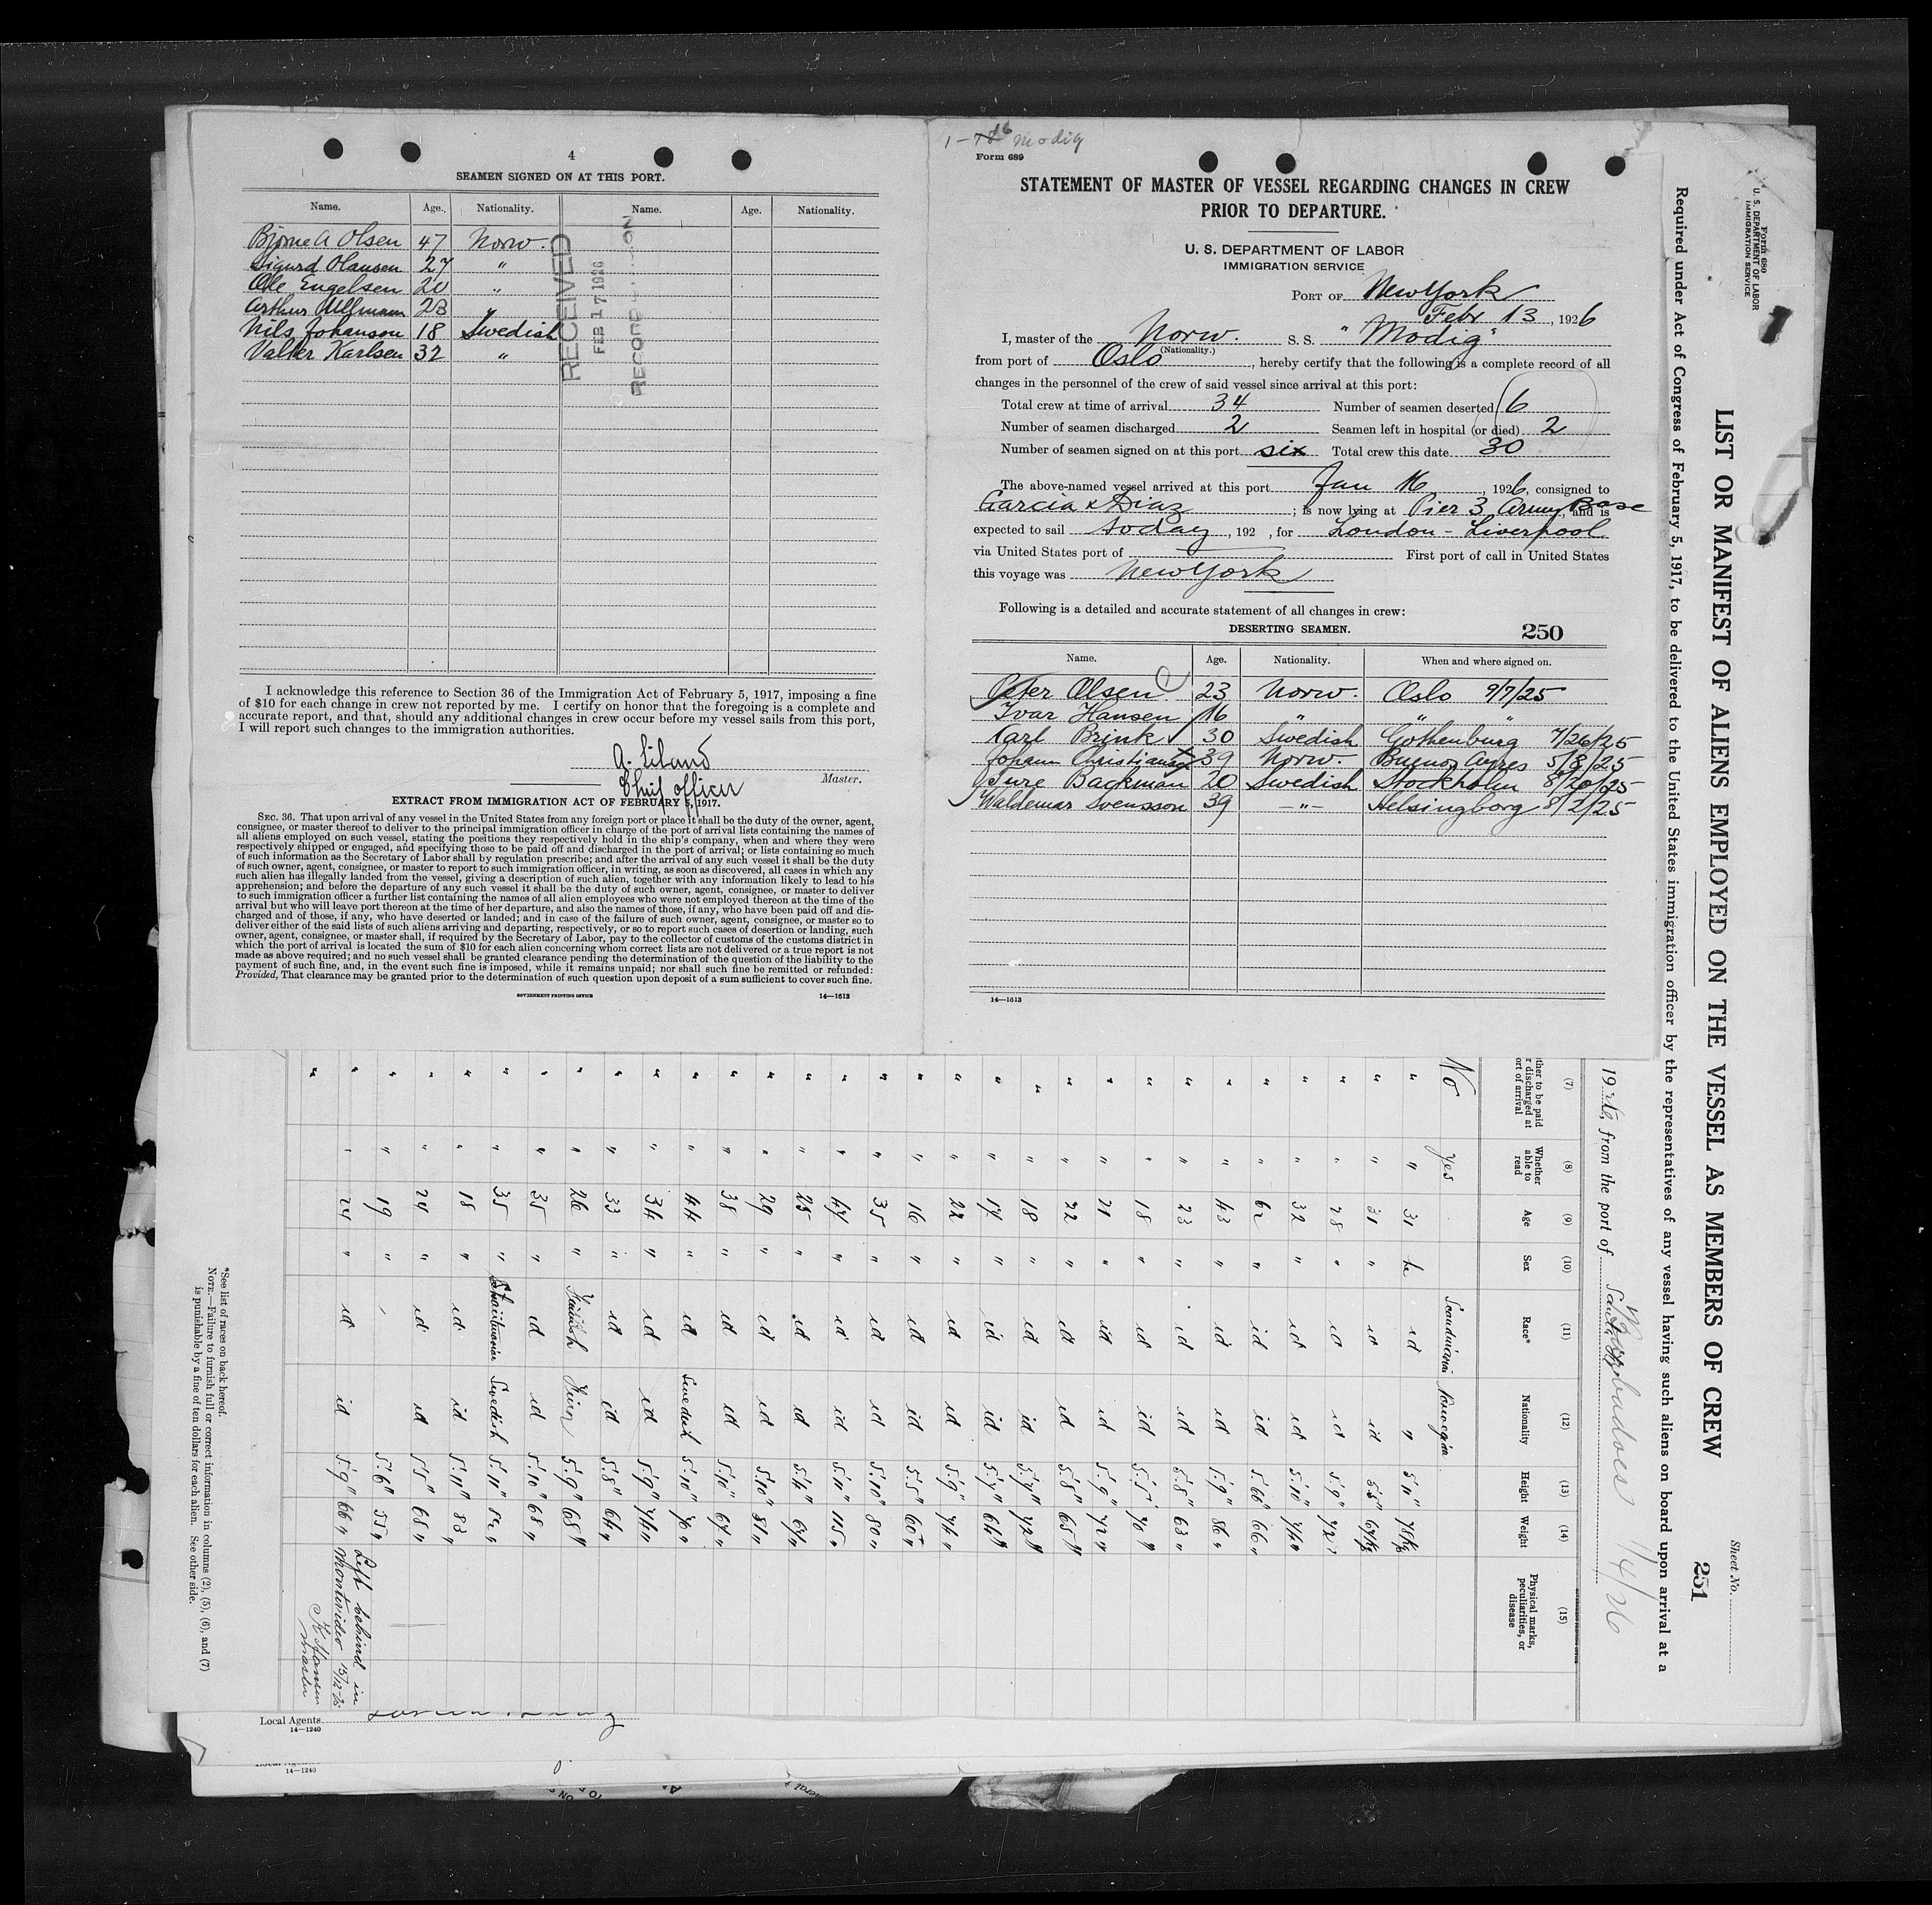 4
SEAMEN SIGNED ON AT THIS PORT.
Name. Age. Nationality. Name. Age. Nationality.
Bjorne A Olsen 47 Norw.
Sigurd Hansen 27 "
Ole Engelsen 20 "
Arthur Ullmann 23 "
Nils Johanson 18 Swedish
Valter Karlsen 32 "
RECEIVED
FEB 17 1926
RECORD
I acknowledge this reference to Section 36 of the Immigration Act of February 5, 1917, imposing a fine
of $10 for each change in crew not reported by me. I certify on honor that the foregoing is a complete and
accurate report, and that, should any additional changes in crew occur before my vessel sails from this port,
I will report such changes to the immigration authorities.
A. Liland
Chief officer Master.
EXTRACT FROM IMMIGRATION ACT OF FEBRUARY 5, 1917.
SEC. 36. That upon arrival of any vessel in the United States from any foreign port or place it shall be the duty of the owner, agent,
consignee, or master thereof to deliver to the principal immigration officer in charge of the port of arrival lists containing the names of
all aliens employed on such vessel, stating the positions they respectively hold in the ship's company, when and where they were
respectively shipped or engaged, and specifying those to be paid off and discharged in the port of arrival; or lists containing so much
of such information as the Secretary of Labor shall by regulation prescribe; and after the arrival of any such vessel it shall be the duty
of such owner, agent, consignee, or master to report to such immigration officer, in writing, as soon as discovered, all cases in which any
such alien has illegally landed from the vessel, giving a description of such alien, together with any information likely to lead to his
apprehension; and before the departure of any such vessel it shall be the duty of such owner, agent, consignee, or master to deliver
to such immigration officer a further list containing the names of all alien employees who were not employed thereon at the time of the
arrival but who will leave port thereon at the time of her departure, and also the names of those, if any, who have been paid off and dis-
charged and of those, if any, who have deserted or landed; and in case of the failure of such owner, agent, consignee, or master so to
deliver either of the said lists of such aliens arriving and departing, respectively, or so to report such cases of desertion or landing, such
owner, agent, consignee, or master shall, if required by the Secretary of Labor, pay to the collector of customs of the customs district in
which the port of arrival is located the sum of $10 for each alien concerning whom correct lists are not delivered or a true report is not
made as above required; and no such vessel shall be granted clearance pending the determination of the question of the liability to the
payment of such fine, and, in the event such fine is imposed, while it remains unpaid; nor shall such fine be remitted or refunded:
Provided, That clearance may be granted prior to the determination of such question upon deposit of a sum sufficient to cover such fine.
GOVERNMENT PRINTING OFFICE 14—1613
Modig
Form 689
STATEMENT OF MASTER OF VESSEL REGARDING CHANGES IN CREW
PRIOR TO DEPARTURE.
U. S. DEPARTMENT OF LABOR
IMMIGRATION SERVICE
PORT OF New York
Febr 13, 1926
I, master of the Norw. S. S. "Modig"
(Nationality.)
from port of Oslo, hereby certify that the following is a complete record of all
changes in the personnel of the crew of said vessel since arrival at this port:
Total crew at time of arrival 34 Number of seamen deserted 6
Number of seamen discharged 2 Seamen left in hospital (or died) 2
Number of seamen signed on at this port six Total crew this date 30
The above-named vessel arrived at this port Jan 16, 1926, consigned to
Garcia & Diaz; is now lying at Pier 3 Army Base, and is
expected to sail today, 192 , for London - Liverpool
via United States port of First port of call in United States
this voyage was New York
Following is a detailed and accurate statement of all changes in crew:
DESERTING SEAMEN. 250
Name. Age. Nationality. When and where signed on.
Peter Olsen 23 Norw. Oslo 9/7/25
Ivar Hansen 16 " " "
Karl Brink 30 Swedish Gothenburg 7/26/25
Johann Christiansen 39 Norw. Buenos Ayres 5/8/25
Ture Backman 20 Swedish Stockholm 8/20/25
Waldemar Svensson 39 -"- Helsingborg 8/2/25
14—1613
Form 680
U. S. DEPARTMENT OF LABOR
IMMIGRATION SERVICE
Sheet No.
251
LIST OR MANIFEST OF ALIENS EMPLOYED ON THE VESSEL AS MEMBERS OF CREW
Required under Act of Congress of February 5, 1917, to be delivered to the United States immigration officer by the representatives of any vessel having such aliens on board upon arrival at a
1926, from the port of Barbadoes 1/4/26
(7) (8) (9) (10) (11) (12) (13) (14) (15)
ther to be paid
r discharged at
ort of arrival
Whether
able to
read
Age Sex Race* Nationality Height Weight
Physical marks,
peculiarities, or
disease
No Yes Scandinavian Norwegian
" " 31 id " 5'11"
" " 31 " id id
" " 28 " id id 5'9" 72
" " 32 " id id 5'10"
" " 62 " id id 66
" " 43 " id id 5'9" 86
" " 23 " id id 5'8" 63
" " 18 " id id 5'5" 70
" " 21 " id id 5'9" 72
" " 22 " id id 5'8" 65
" " 18 " id id 5'7" 72
" " 17 " id id 5'7" 64
" " 22 " id id 5'9"
" " 16 " id id 5'5" 60
" " 35 " id id 5'10" 80
" " 47 " id id 5'11" 115
" " 25 " id id 5'4" 67
" " 29 " id id 5'10" 81
" " 38 " id id 5'10" 67
" " 44 " id Swedish 5'10" 70
" " 34 " id id 5'9"
" " 33 " id id 5'8" 64
" " 26 " Finnish 5'9" 68
" " 35 " id id 5'10" 68
" " 35 " Swedish 5'11" 82
" " 18 " id id 5'11" 83
" " 24 " id id 5'5" 68
" " 19 " 5'6" 55
" " 24 " id id 5'9" 66
Left behind in
Montevideo
K. Hansen
master
*See list of races on back hereof.
NOTE.—Failure to furnish full or correct information in columns (2), (5), (6), and (7)
is punishable by a fine of ten dollars for each alien. See other side.
Local Agents
14—1240
14—1240